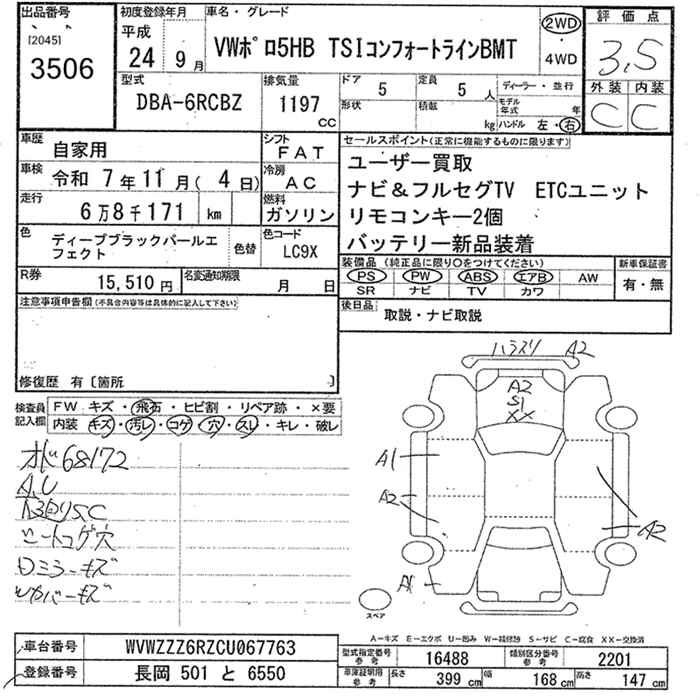 出品番号
[2045]
3506
初度登録年月
平成
24 9月
車名・グレード
VWポロ5HB TSIコンフォートラインBMT
2WD
・
4WD
評価点
3,5
外装 内装
C C
型式
DBA-6RCBZ
排気量
1197
CC
ドア
5
形状
定員
5 人
積載
kg
ディーラー・並行
モデル年式 年
ハンドル 左・右
車歴
自家用
シフト
FAT
車検
令和 7年11月( 4日)
冷房
AC
走行
6万8千171 km
燃料
ガソリン
色
ディープブラックパールエフェクト
色替
色コード
LC9X
R券
15,510円
名変通知期限
月 日
セールスポイント(正常に機能するものに限ります)
ユーザー買取
ナビ&フルセグTV ETCユニット
リモコンキー2個
バッテリー新品装着
装備品(純正品に限り○をつけてください)
PS PW ABS エアB AW
SR ナビ TV カワ
新車保証書
有・無
後日品
取説・ナビ取説
注意事項申告欄(不具合内容等は具体的に記入して下さい)
修復歴 有〔箇所 〕
検査員記入欄
FW キズ・飛石・ヒビ割・リペア跡・×要
内装 キズ・汚レ・コゲ・穴・スレ・キレ・破レ
68172
シートコゲ穴
ロミラーキズ
ハラスリ A2
A2
S1
XX
A1
A2
A2
A1
スペア
A-キズ E-エクボ U-凹み W-補修跡 S-サビ C-腐食 XX-交換済
車台番号
WVWZZZ6RZCU067763
登録番号
長岡 501 と 6550
型式指定番号
参考
16488
類別区分番号
参考
2201
車庫証明用
参考
長さ 399 cm
幅 168 cm
高さ 147 cm